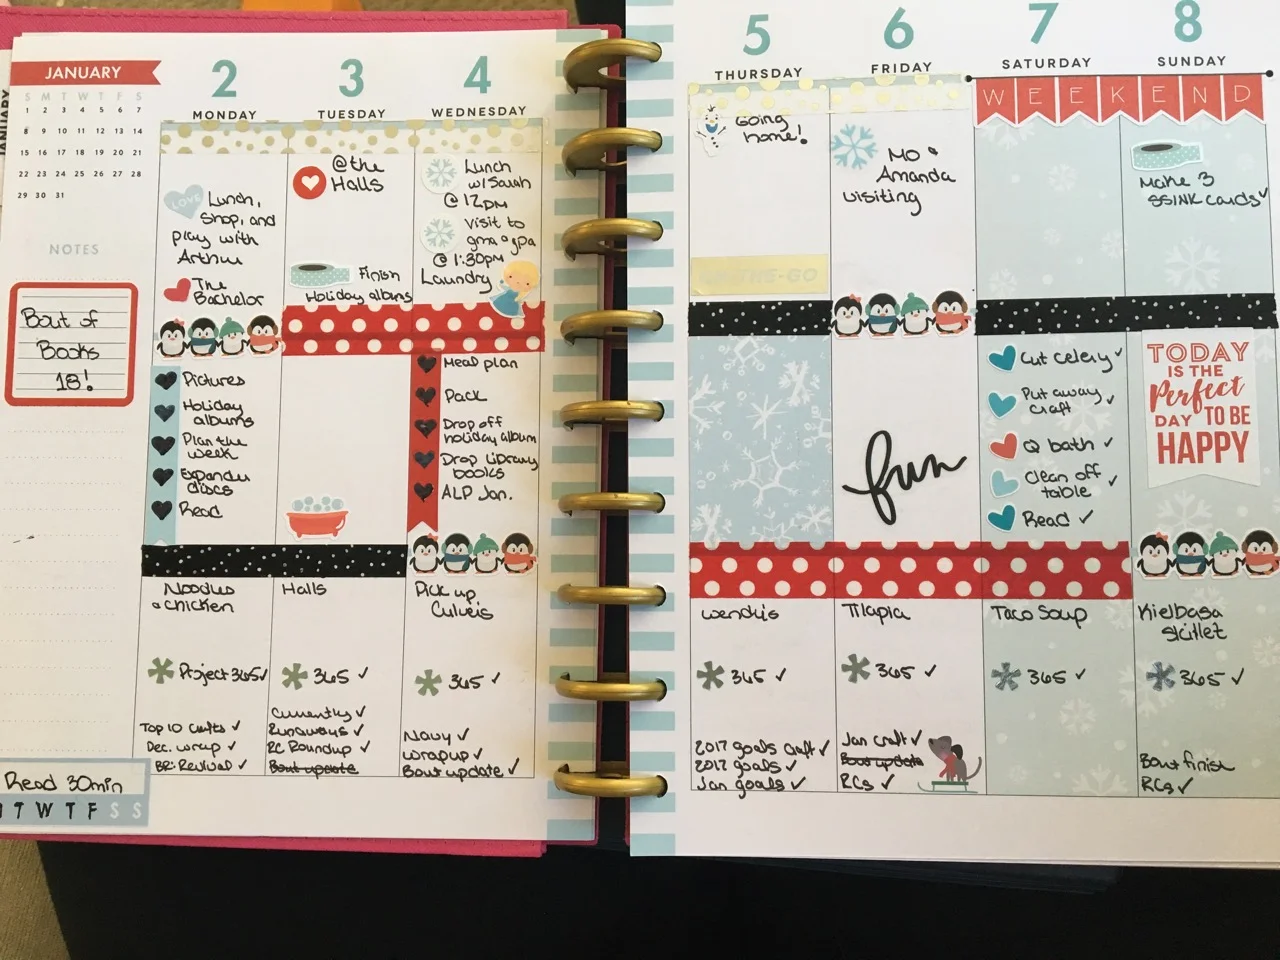 JANUARY
S M T W T F S
1 2 3 4 5 6 7
8 9 10 11 12 13 14
15 16 17 18 19 20 21
22 23 24 25 26 27 28
29 30 31
NOTES
Bout of
Books
18!
Read 30min
T W T F S S
2
MONDAY
LOVE
Lunch,
Shop, and
play with
Arthur
The
Bachelor
Pictures
Holiday
albums
Plan the
week
Expander
discs
Read
Noodles
& Chicken
Project 365 ✓
Top 10 crafts ✓
Dec. wrap ✓
BR: Revival ✓
3
TUESDAY
@ the
Halls
Finish
Holiday albums
Halls
365 ✓
Currently ✓
Runaways ✓
RC Roundup ✓
Bout update
4
WEDNESDAY
Lunch
w/ Sarah
@ 12pm
Visit to
gma & gpa
@ 1:30pm
Laundry
Meal plan
Pack
Drop off
holiday album
Drop Library
books
ALP Jan.
Pick up
Culvers
365 ✓
Navy ✓
wrapup ✓
Bout update ✓
5
THURSDAY
Going
home!
ON-THE-GO
Wendy's
365 ✓
2017 goals craft ✓
2017 goals ✓
Jan goals ✓
6
FRIDAY
Mo &
Amanda
visiting
fun
Tilapia
365 ✓
Jan craft ✓
Bout update
RCs ✓
7
SATURDAY
WEEKEND
Cut celery ✓
Put away
craft ✓
Q bath ✓
Clean off
table ✓
Read ✓
Taco Soup
365 ✓
8
SUNDAY
Make 3
SSINK cards ✓
TODAY
IS THE
Perfect
DAY TO BE
HAPPY
Kielbasa
skillet
365 ✓
Bout finish
RCs ✓